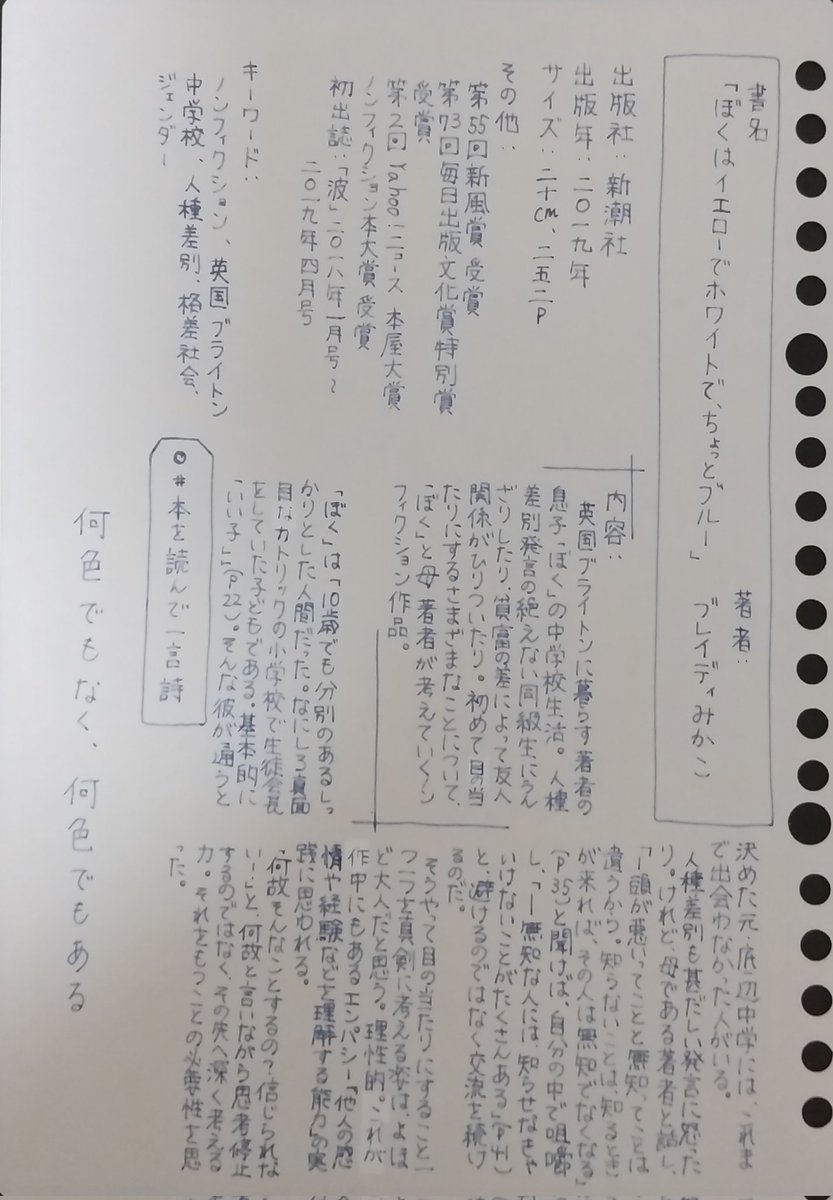 書名
「ぼくはイエローでホワイトで、ちょっとブルー」
著者:
ブレイディみかこ
出版社:新潮社
出版年:二〇一九年
サイズ:二十cm、二五二P
その他:
第55回新風賞 受賞
第73回毎日出版文化賞特別賞
受賞
第2回Yahoo!ニュース 本屋大賞
ノンフィクション本大賞 受賞
初出誌:「波」二〇一八年一月号~
二〇一九年四月号
キーワード:
ノンフィクション、英国ブライトン
中学校、人種差別、格差社会、
ジェンダー
内容:
英国ブライトンに暮らす著者の
息子「ぼく」の中学校生活。人種
差別発言の絶えない同級生にうん
ざりしたり、貧富の差によって友人
関係がひりついたり。初めて目の当
たりにするさまざまなことについて、
「ぼく」と母 著者が考えていくノン
フィクション作品。
「ぼく」は「10歳でも分別のあるしっ
かりとした人間だった。なにしろ真面
目なカトリックの小学校で生徒会長
をしていた子どもである。基本的に
「いい子」」(P22)。そんな彼が通うと
決めた元・底辺中学には、これま
で出会わなかった人がいる。
人種差別も甚だしい発言に怒った
り。けれど、母である著者と話し、
「―頭が悪いってことと無知ってことは
違うから。知らないことは、知るとき
が来れば、その人は無知でなくなる」
(P35)と聞けば、自分の中で咀嚼
し、「―無知な人には、知らせなきゃ
いけないことがたくさんある」(P41)
と、避けるのではなく交流を続け
るのだ。
そうやって目の当たりにすること一
つ一つを真剣に考える姿は、よほ
ど大人だと思う。理性的。これが
作中にもあるエンパシー「他人の感
情や経験などを理解する能力」の実
践に思われる。
「何故そんなことするの?信じられな
い!」と、何故と言いながら思考停止
するのではなく、その先へ深く考える
力。それをもつことの必要性を思
った。
#本を読んで一言詩
何色でもなく、何色でもある